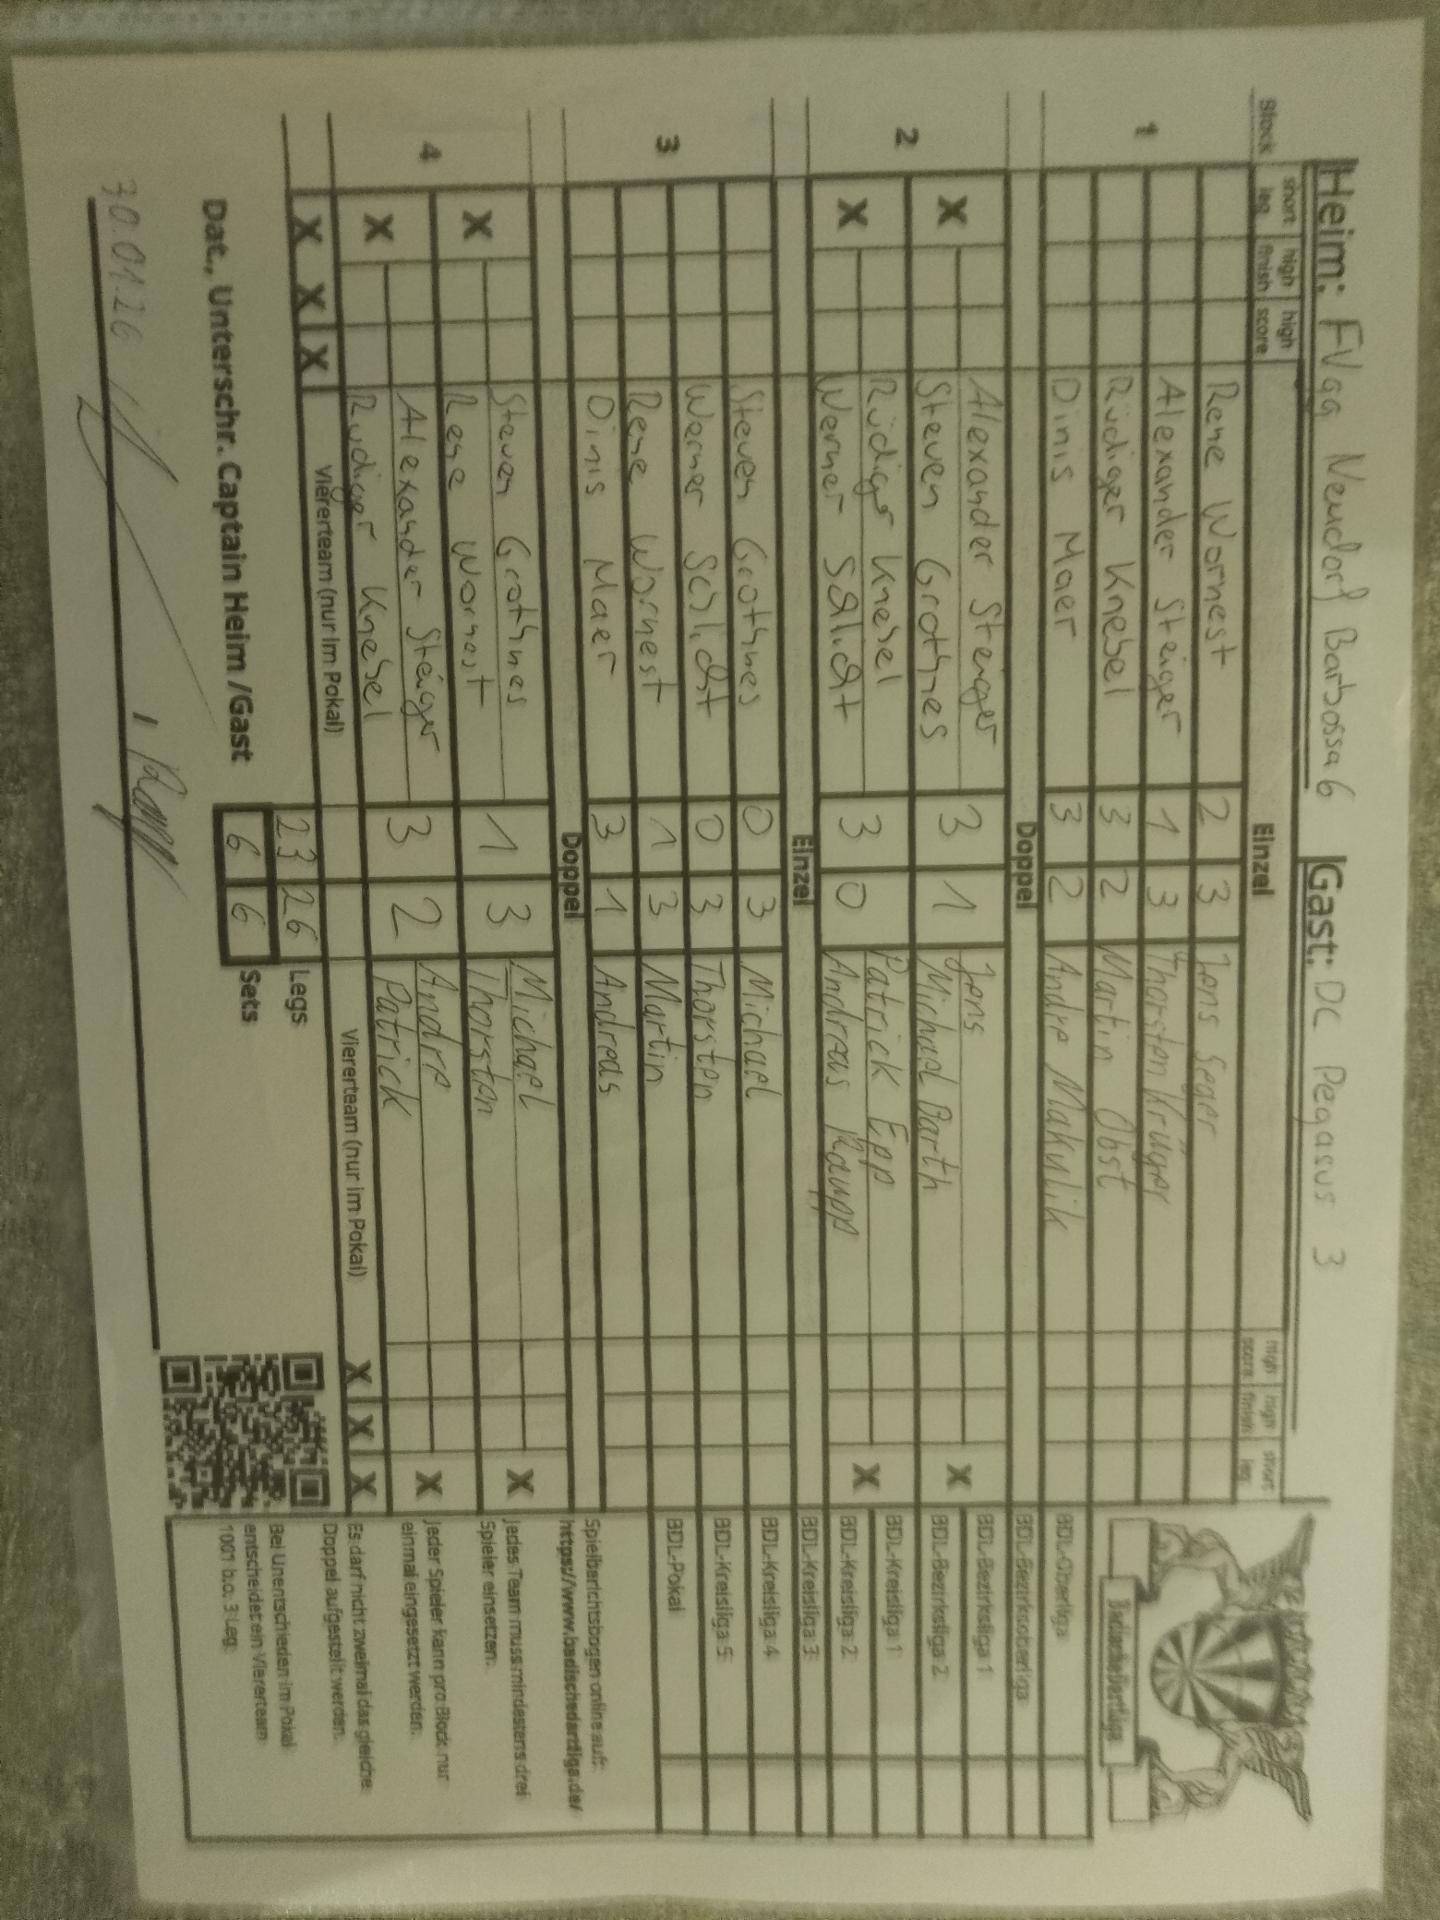 Heim: FVgg Neudorf Barbossa 6 Gast: DC Pegasus 3
Block short leg high finish high score Einzel high score high finish short leg
1
Rene Wornest 2 3 Jens Seger
Alexander Steiger 1 3 Thorsten Krüger
Rüdiger Knebel 3 2 Martin Obst
Dinis Maer 3 2 Andre Makulik
Doppel
2
X Alexander Steiger 3 1 Jens X
Steven Grothues Michael Barth
X Rüdiger Knebel 3 0 Patrick Epp X
Werner Schlicht Andreas Raupp
Einzel
3
Steven Grothues 0 3 Michael
Werner Schlicht 0 3 Thorsten
Rene Wornest 1 3 Martin
Dinis Maer 3 1 Andreas
Doppel
4
X Steven Grothues 1 3 Michael X
Rene Wornest Thorsten
X Alexander Steiger 3 2 Andre X
Rüdiger Knebel Patrick
X X X Viererteam (nur im Pokal) Viererteam (nur im Pokal) X X X
23 26 Legs
Dat., Unterschr. Captain Heim /Gast 6 6 Sets
30.01.26
Badische Dartliga
BDL-Oberliga
BDL-Bezirksoberliga
BDL-Bezirksliga 1
BDL-Bezirksliga 2
BDL-Kreisliga 1
BDL-Kreisliga 2
BDL-Kreisliga 3
BDL-Kreisliga 4
BDL-Kreisliga 5
BDL-Pokal
Spielberichtsbogen online auf:
https://www.badischedartliga.de/
Jedes Team muss mindestens drei
Spieler einsetzen.
Jeder Spieler kann pro Block nur
einmal eingesetzt werden.
Es darf nicht zweimal das gleiche
Doppel aufgestellt werden.
Bei Unenschieden im Pokal
entscheidet ein Viererteam
1001 b.o. 3 Leg.